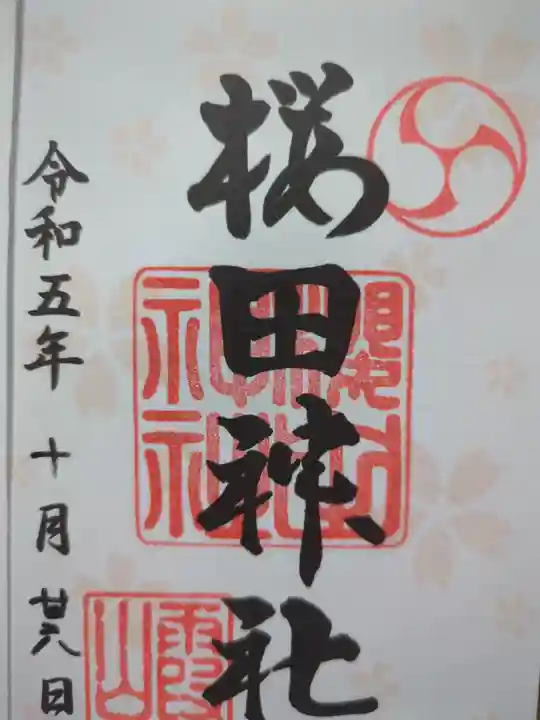 桜田神社
令和五年 十月 廿八日